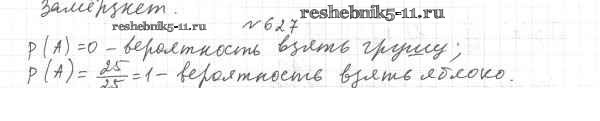 замёрзнет.
reshebnik5-11.ru
№627
reshebnik5-11.ru
P(A)=0 - вероятность взять грушу;
P(A)= 25/25 =1 - вероятность взять яблоко.